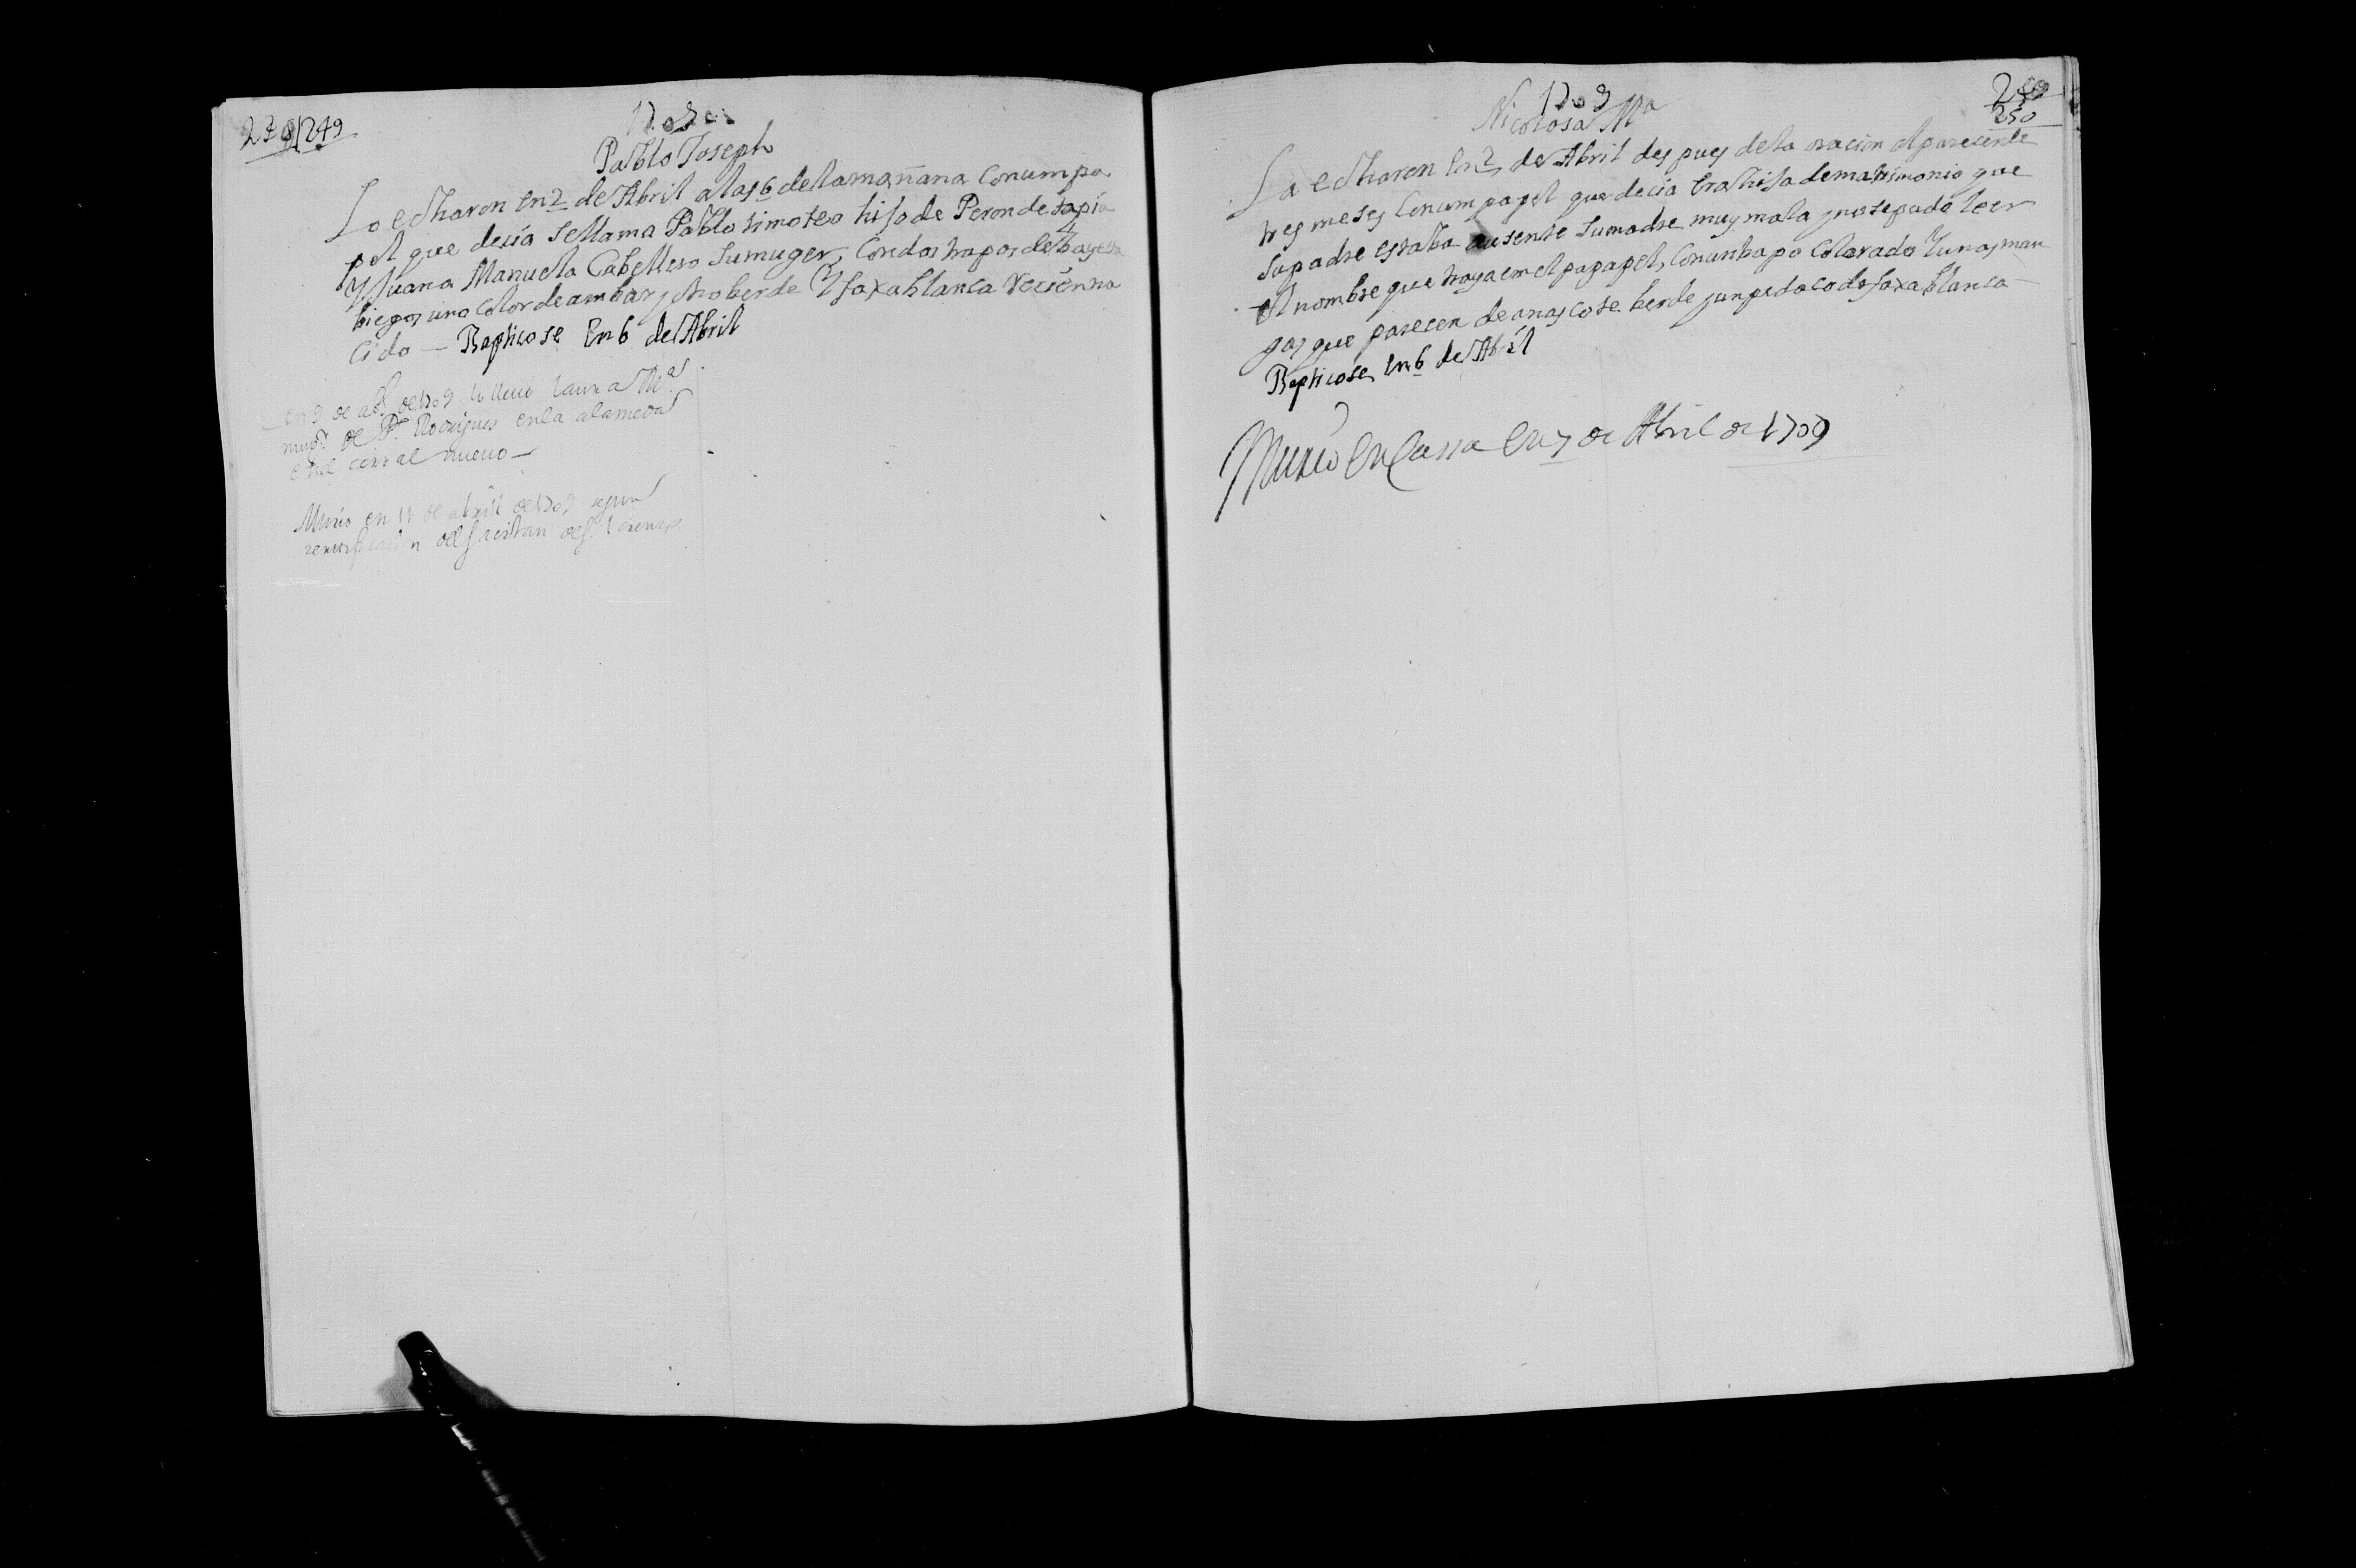 249
1709
Pablo Joseph
Lo echaron en 2 de Abril a las 6 de la mañana con um pa
pel que decia se llama Pablo timoteo hijo de Peron de tapia
Y Juana Manuela Caballero su muger, con dos trapos de bayeta
biejos uno color de ambar y otro berde Y faxa blanca Recien na
cido — Bapticose en 6 de Abril
en 9 de ab.l de 1709 lo llevo Laura M.a
mug.r de P.o Rodrigues en la alameda
en el corral nuevo —
Murio en 11 de abril de 1709
del sacristan de S. Loren
1709
250
Nicolosa M.a
La echaron en 2 de Abril des pues de la oracion al parecer de
tres meses con um papel que decia Era hija de matrimonio que
su padre estaba ausente su madre muy mala y no se pudo leer
el nombre que traya em el papapel, con un trapo colorado Y unas man
gas que parecen de anascote berde y un pedaco de faxa blanca —
Bapticose en 6 de Abril
Murio en Cassa en 7 de Abril de 1709